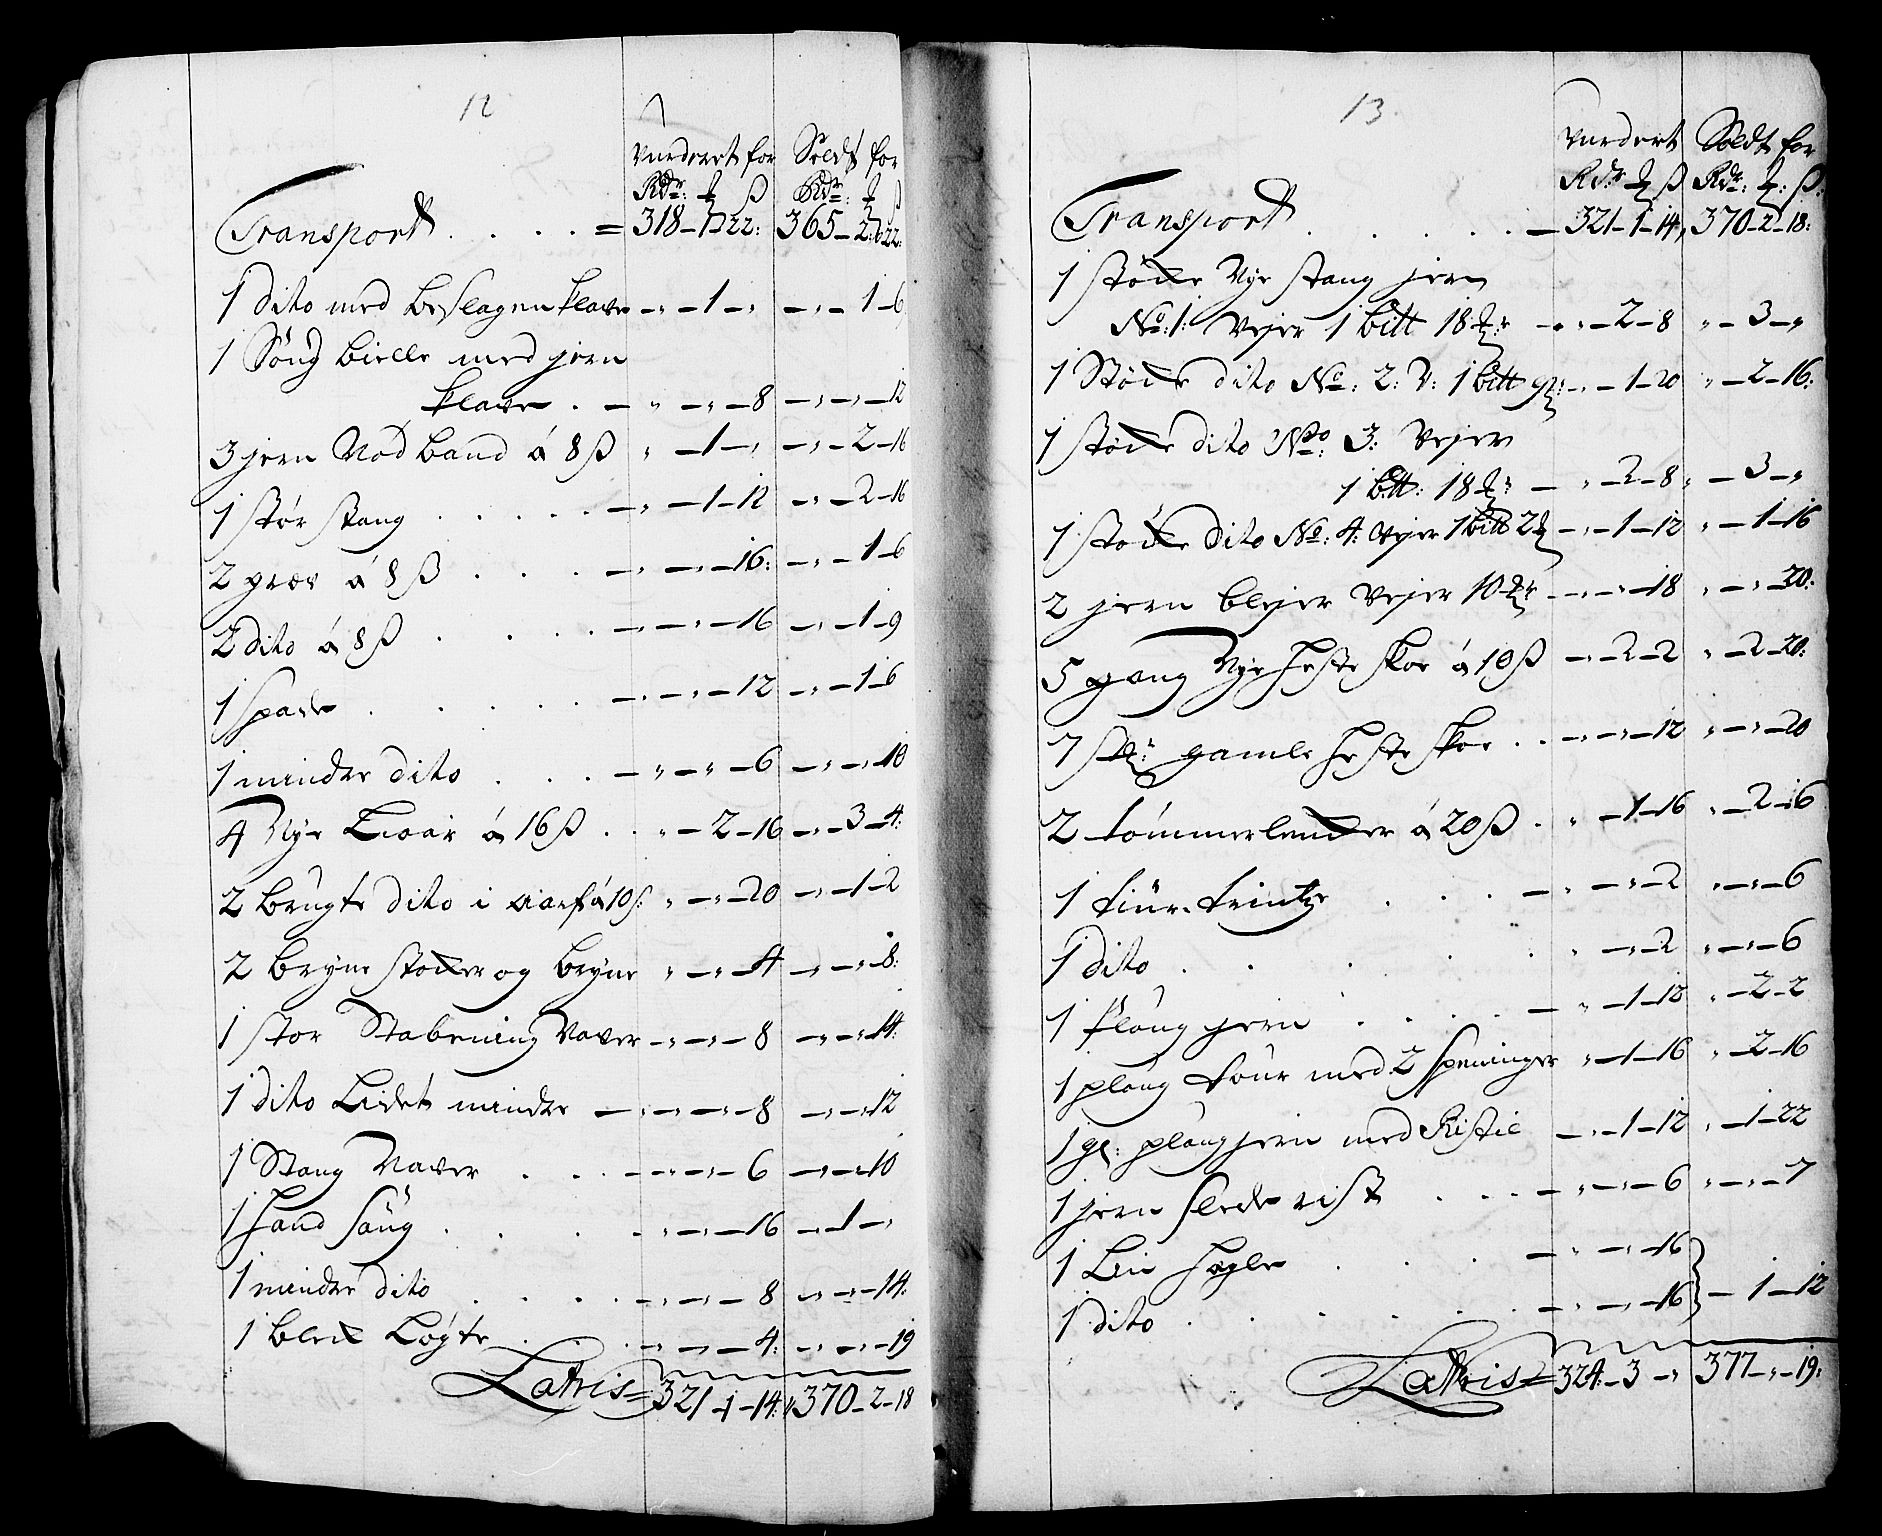 12
Vurderet for Soldt for
Rdr: ꝑ ß Rdr: ꝑ ß
Transport . . . . = 318 - 1 - 22: 365 - 2: 22:
1 dito med beslagen klave - " - 1 - " - " - 1 - 6
1 Söng bielle med jern
klave . - " - " - 8 - " - " - 12
3 jern Vod band á 8 ß " - 1 - " - " - 2 - 16
1 stør stang . . . . . - " - 1 - 12 - " - 2 - 16
2 grev á 8 ß . . . - " - " - 16: - " - 1 - 6
2 dito á 8 ß . . . . - " - " - 16 - " - 1 - 9
1 Spade . . . . . - " - " - 12 - " - 1 - 6
1 mindre dito . . . - " - " - 6 - " - " - 10
4 Nye Lioar á 16 ß . . " - 2 - 16 - " - 3 - 4:
2 brugte dito i aarf á 10 ß: " - " - 20 - " - 1 - 2
2 bryne stocker og bryne " - " - 4 - " - " - 8:
1 stor Stabrening Naver - " - " - 8 - " - " - 14:
1 dito Lidet mindre - " - " - 8 - " - " - 12
1 Stang Naver . . . - " - " - 6 - " - " - 10
1 Hand Saug . . . . " - " - 16 - " - 1 - "
1 mindre dito . . . . - " - " - 8 - " - " - 14:
1 bleck Løgte . . . " - " - 4: - " - " - 19
Latris = 321 - 1 - 14: 370 - 2 - 18
13
Vurdert Soldt for
Rdr: ꝑ ß Rdr: ꝑ: ß:
Transport . . . . . - 321 - 1 - 14, 370 - 2 - 18:
1 støcke Nye stang jern
No: 1: Vejer 1 bitt 18 ꝑr - " - 2 - 8 " - 3 - "
1 Støcke dito No: 2: V: 1 bitt 9 ꝑ: - " - 1 - 20 " - 2 - 16:
1 støcke dito No: 3: Vejer
1 bitt: 18 ꝑr - " - 2 - 8 " - 3 - "
1 støcke dito No: 4: Vejer 1 bitt 2 ꝑ - " - 1 - 12 " - 1 - 16
2 jern blejer Vejer 10 ꝑr - " - " - 18 " - " - 20:
5 gang Nye Heste Skoe á 10 ß - " - 2 - 2 " - 2 - 20:
7 St: gamle Heste Skoe . . - " - " - 12 " - " - 20
2 tömmerlencker á 20 ß . " - 1 - 16 " - 2 - 16
1 . . . - " - " - 2 " - " - 6
1 dito . . . . . " - " - 2 " - " - 6
1 Ploug jern . . . . - " - 1 - 12 " - 2 - 2
1 ploug med 2 Spenninger " - 1 - 16 " - 2 - 16
1 gl: plougjern med Ristil - " - 1 - 12 " - 1 - 22
1 jern Slede rist . . . - " - " - 6 " - " - 7
1 Lin Hegle . . . - " - " - 16
1 dito . . . . . - " - " - 16 } - 1 - 12
Latris = 324: - 3 - " 377 - " - 19: